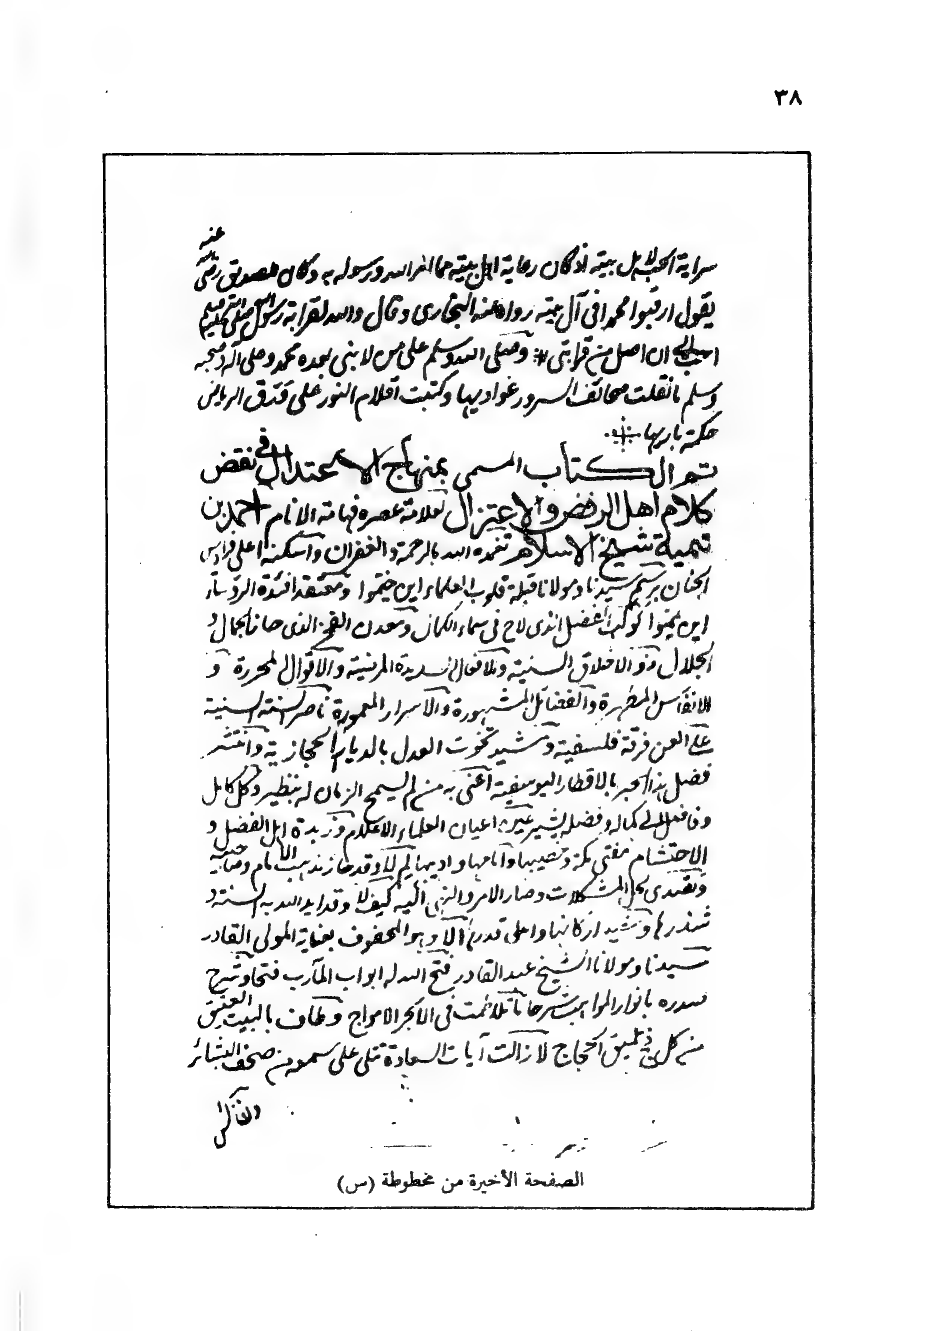 ٣٨
عنه
سراية الحب لاهل بيته اذ كان رعاية اهل بيته مما امر الله ورسوله به وكان الصديق رضي الله
يقول ارقبوا محمدا في آل بيته رواه عنه البخاري وقال والله لقرابة رسول الله صلى الله عليه وسلم
احب الي ان اصل من قرابتي وصلى الله وسلم على من لا نبي بعده محمد وعلى آله وصحبه
وسلم ما نقلت صحائف السرور غواديها وكتبت اقلام النور على ورق الرياض
حكمة باريها
تم الكتاب المسمى بمنهاج الاعتدال في نقض
كلام اهل الرفض والاعتزال لعلامة عصره فهامة الانام احمد بن
تيمية شيخ الاسلام تغمده الله بالرحمة والغفران واسكنه اعلى فراديس
الجنان برسم سيدنا ومولانا قبلة قلوب العلماء اين خيموا ومعتقد افئدة الرؤساء
اين يمموا كوكب الفضل الذي لاح في سماء الكمال ومعدن الذي حاز الجمال و
الجلال ذو الاخلاق السنية والافعال السديدة المرضية والاقوال المحررة و
الانفاس المطهرة والفضائل المشهورة والاسرار المعمورة ناصر السنة السنية
فرقة فلسفية ومشيد العدل بالديار الحجازية وانتشر
فضل هذا الحبر بالاقطار اليوسفية اعني به من لم يسمح الزمان له بنظير وكل كامل
الى كماله وفضله يشير عين اعيان العلماء الاعلام وزبدة اهل الفضل و
الاحتشام مفتي مكة وخطيبها وامامها واديبها لم لا وقد حاز مذهب الامام وصاحبيه
وتصدى لحل المشكلات وصار الامر والنهي اليه كيف لا وقد ايد الله به السنة و
وشيد اركانها واعلى قدرها الا وهو المحفوف بعناية المولى القادر
سيدنا ومولانا الشيخ عبد القادر فتح الله له ابواب المآرب فتحا وشرح
صدره بانوار المواهب شرحا ما تلاطمت في الابحر الامواج وطاف بالبيت العتيق
من كل فج عميق الحجاج لا زالت آيات السعادة تتلى على سموه من صحف البشائر
الصفحة الأخيرة من مخطوطة (س)